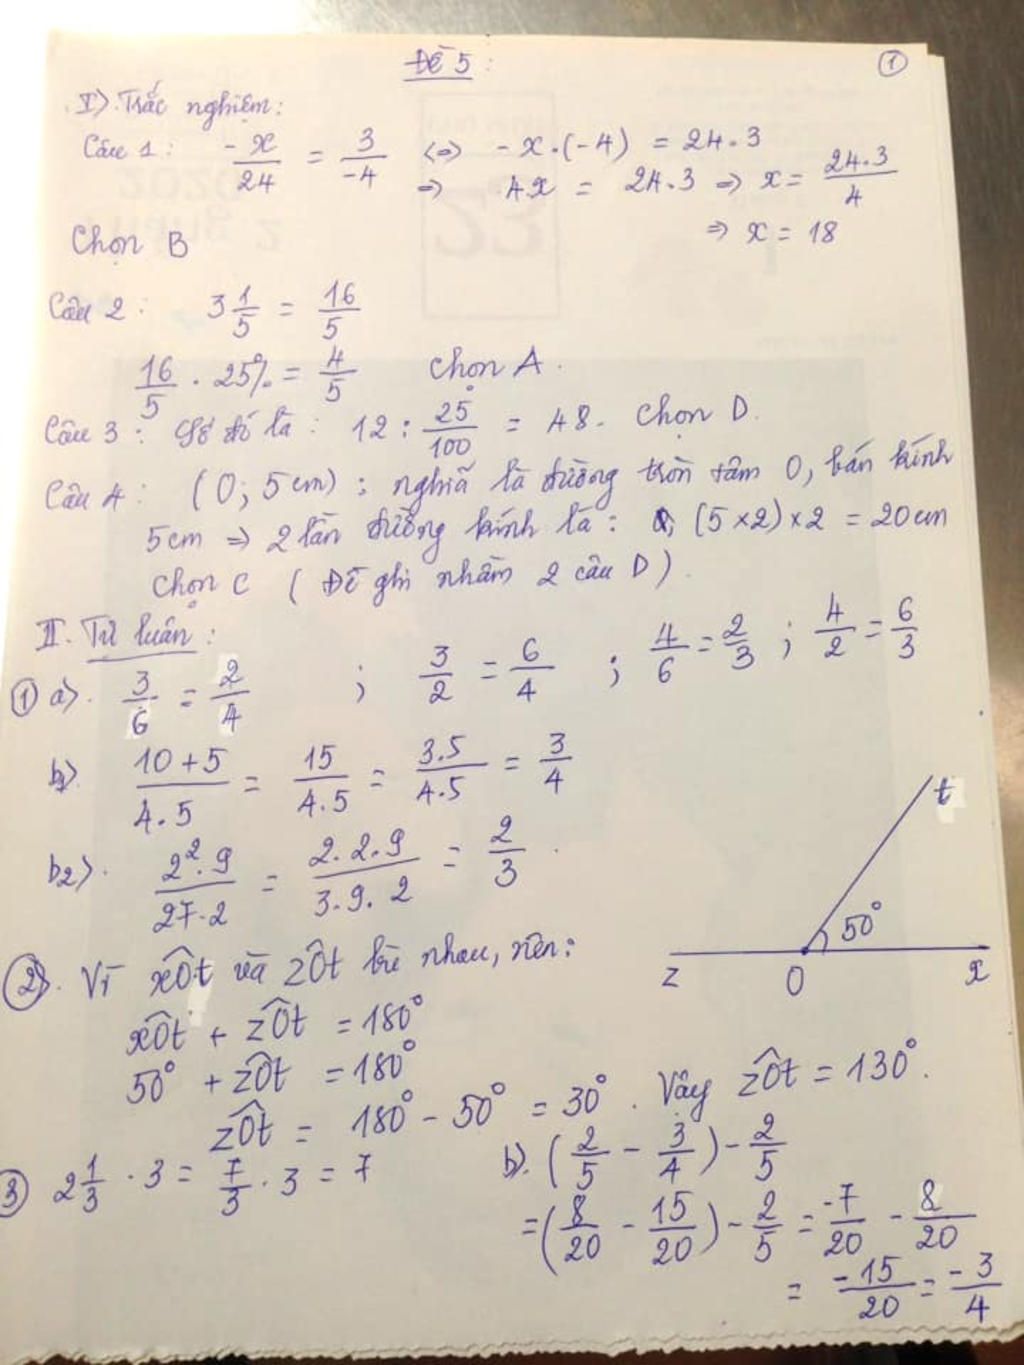 Đề 5 : ①
I). Trắc nghiệm:
Câu 1 : -x/24 = 3/-4 <=> -x.(-4) = 24.3
=> 4x = 24.3 => x = 24.3/4
=> x = 18
Chọn B
Câu 2 : 3 1/5 = 16/5
16/5 . 25% = 4/5 Chọn A.
Câu 3 : Số đó là : 12 : 25/100 = 48. Chọn D.
Câu 4 : (O; 5cm) ; nghĩa là đường tròn tâm O, bán kính
5cm => 2 lần đường kính là : (5×2)×2 = 20cm
Chọn C ( Đề ghi nhầm 2 câu D ).
II. Tự luận :
① a). 3/6 = 2/4 ; 3/2 = 6/4 ; 4/6 = 2/3 ; 4/2 = 6/3
b). 10+5/4.5 = 15/4.5 = 3.5/4.5 = 3/4
b2). 2².9/27.2 = 2.2.9/3.9.2 = 2/3.
t
50°
z O x
②. Vì xÔt và zÔt bù nhau, nên :
xÔt + zÔt = 180°
50° + zÔt = 180°
zÔt = 180° - 50° = 30°. Vậy zÔt = 130°.
③ 2 1/3 . 3 = 7/3 . 3 = 7
b). (2/5 - 3/4) - 2/5
= (8/20 - 15/20) - 2/5 = -7/20 - 8/20
= -15/20 = -3/4